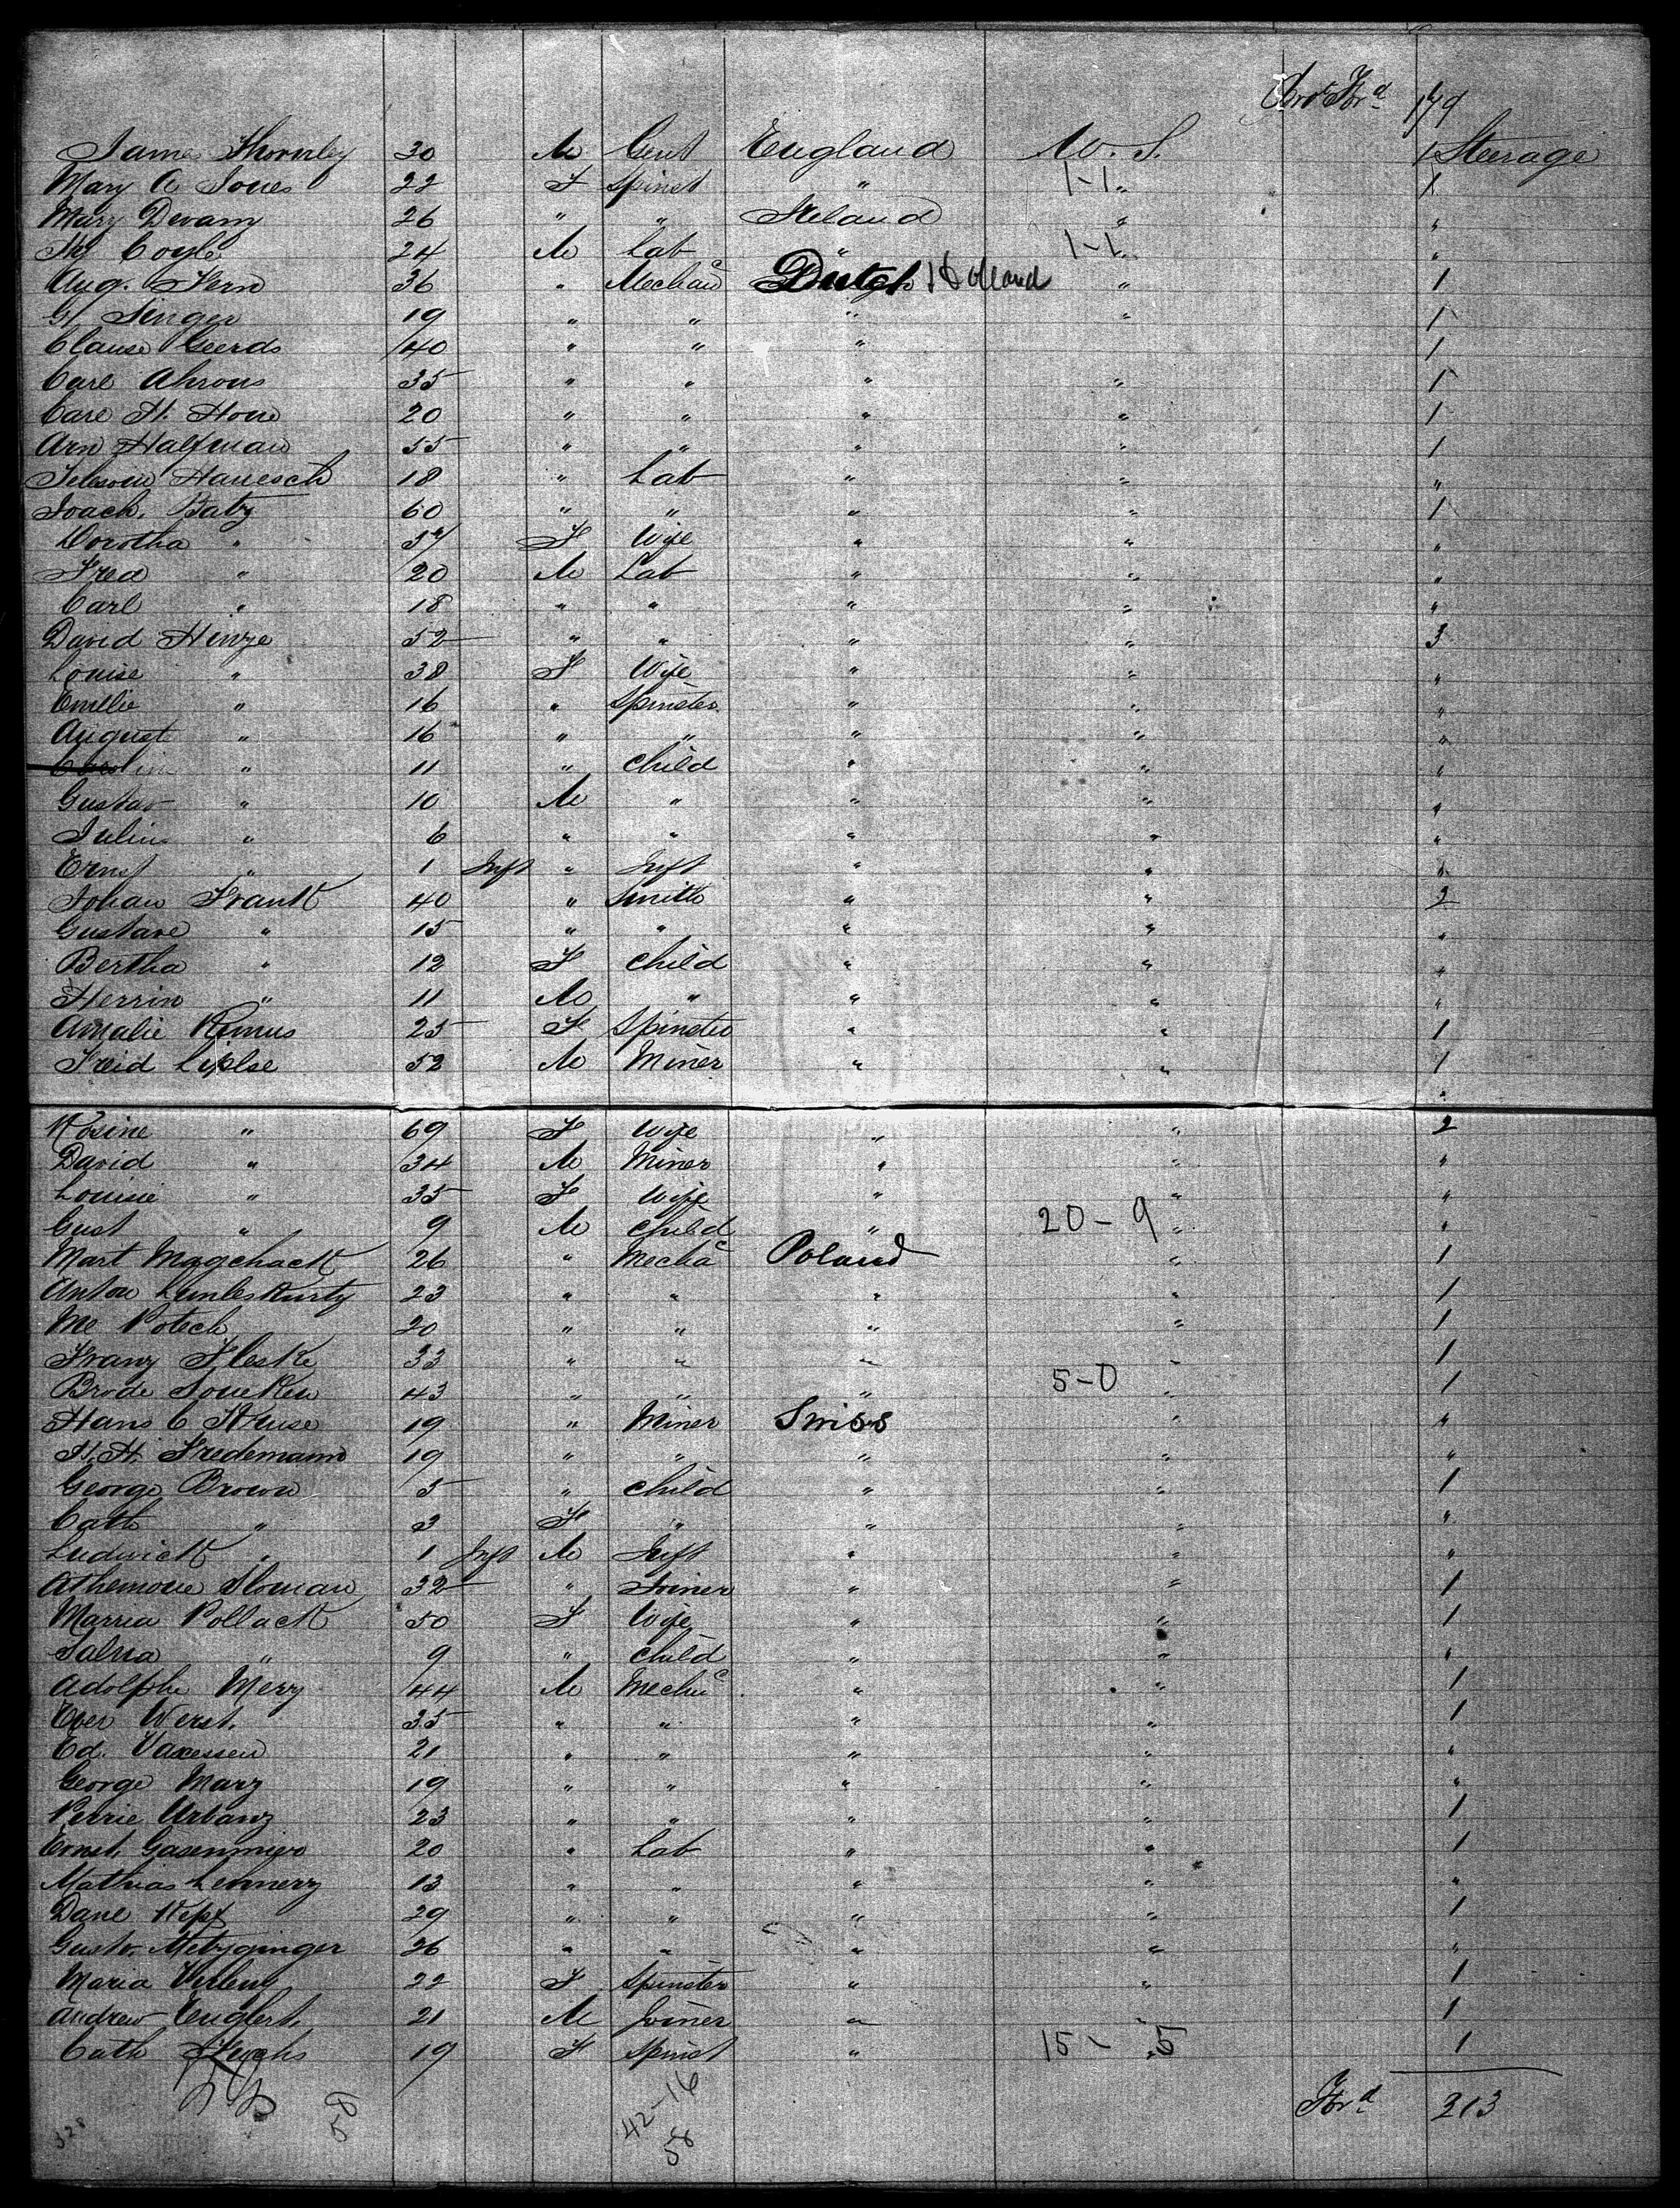 Brot Ford 179
James Thornley 30 M Gent England U.S. 1 Steerage
Mary A Jones 22 F Spinst " 1-1 " 1
Mary Devany 26 " " Ireland " "
My Coyle 24 M Lab " 1-1 " "
Aug. Kern 36 " Mechanc Dutch Holland " 1
G Singer 19 " " " " 1
Clause Geerds 40 " " " 1
Carl Ahrons 35 " " " " 1
Carl H. Horn 20 " " " " 1
Arn Halfman 55 " " " " 1
Hanesch 18 " Lab " " "
Joach. Batz 60 " " " " 1
Dorotha " 57 F Wife " " "
Fred " 20 M Lab " " "
Carl " 18 " " " " "
David Hinze 52 " " " " 3
Louise " 38 F Wife " " "
Emilie " 16 " Spinster " " "
August " 16 " " " " "
" 11 " Child " " "
Gustav " 10 M " " " "
Julius " 6 " " " " "
Ernst " 1 Inft " Inft " " "
Johan Frank 40 " Smith " " 2
Gustave " 15 " " " " "
Bertha " 12 F Child " " "
Herrin " 11 M " " " "
Amalie Remus 25 F Spinster " " 1
Freid Lipelse 52 M Miner " " 1
Rosine " 69 F Wife " " 2
David " 34 M Miner " " "
Louisie " 35 F Wife " " "
Gust " 9 M Child " 20-9 " "
Mart Magchack 26 " Mechac Poland " 1
Anton 23 " " " " 1
Me Potech 20 " " " " 1
Franz Fleske 33 " " " " 1
Brode Soneken 43 " " " 5-0 " 1
Hans C Kruse 19 " Miner Swiss " "
H. H. Fredemann 19 " " " " "
George Brown 5 " Child " " 1
Cath " 3 F " " " "
Ludwick " 1 Inft M Inft " " "
Athemone Sloman 32 " Joiner " " 1
Marria Pollack 50 F Wife " " 1
Salna " 9 " Child " " "
Adolphe Merz 44 M Mechc " " 1
Ever Werst. 35 " " " " 1
Ed. Vaxessen 21 " " " " "
George Marz 19 " " " " "
Perrie Urbanz 23 " " " " 1
Ernst. Gasenmier 20 " Lab " " 1
Mathias Lemmerz 13 " " " " "
Dane Kepf 29 " " " " 1
Gusto. Metzginger 26 " " " " "
Maria 22 F Spinster " " 1
Andrew Englert. 21 M Joiner " " 1
Cath Fuchs 19 F Spinst " 15- " 5 1
58 42-16 Ford 213
58